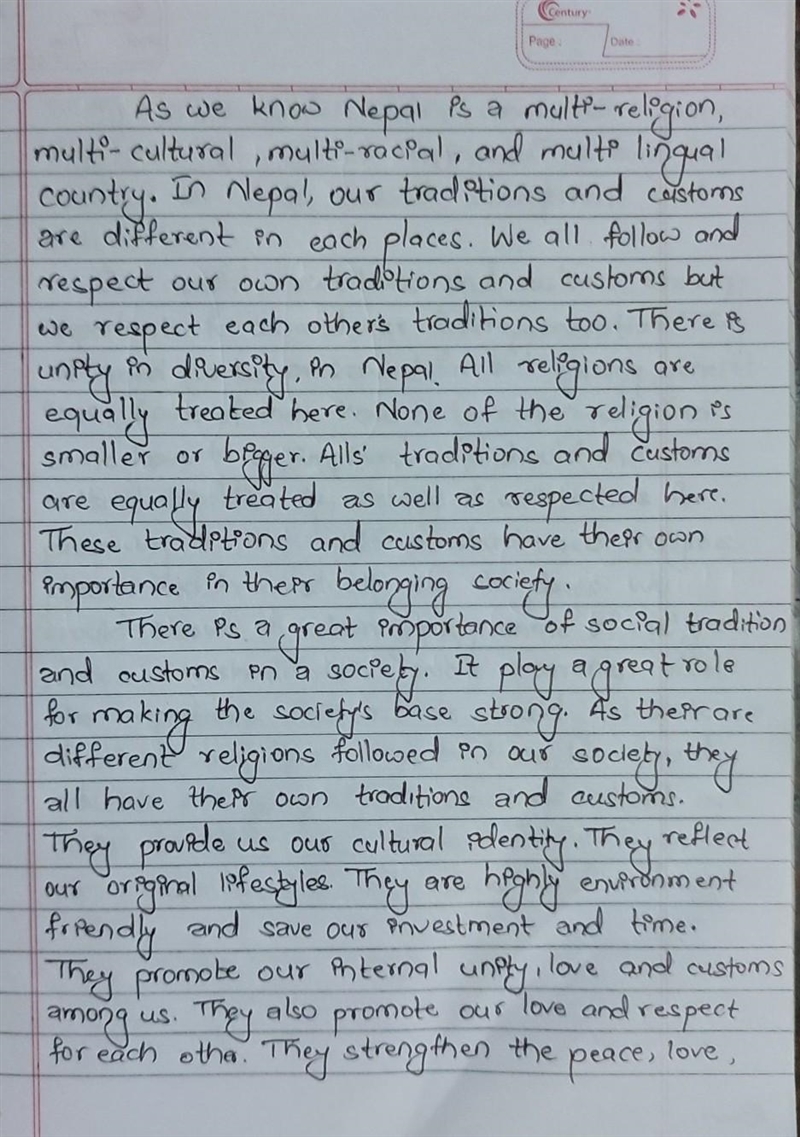 Century
Page : Date :
As we know Nepal is a multi-religion,
multi-cultural, multi-racial, and multi lingual
country. In Nepal, our traditions and customs
are different in each places. We all follow and
respect our own traditions and customs but
we respect each other's traditions too. There is
unity in diversity, in Nepal. All religions are
equally treated here. None of the religion is
smaller or bigger. Alls' traditions and customs
are equally treated as well as respected here.
These traditions and customs have their own
importance in their belonging society.
There is a great importance of social tradition
and customs in a society. It play a great role
for making the society's base strong. As their are
different religions followed in our society, they
all have their own traditions and customs.
They provide us our cultural identity. They reflect
our original lifestyles. They are highly environment
friendly and save our investment and time.
They promote our internal unity, love and customs
among us. They also promote our love and respect
for each other. They strengthen the peace, love,